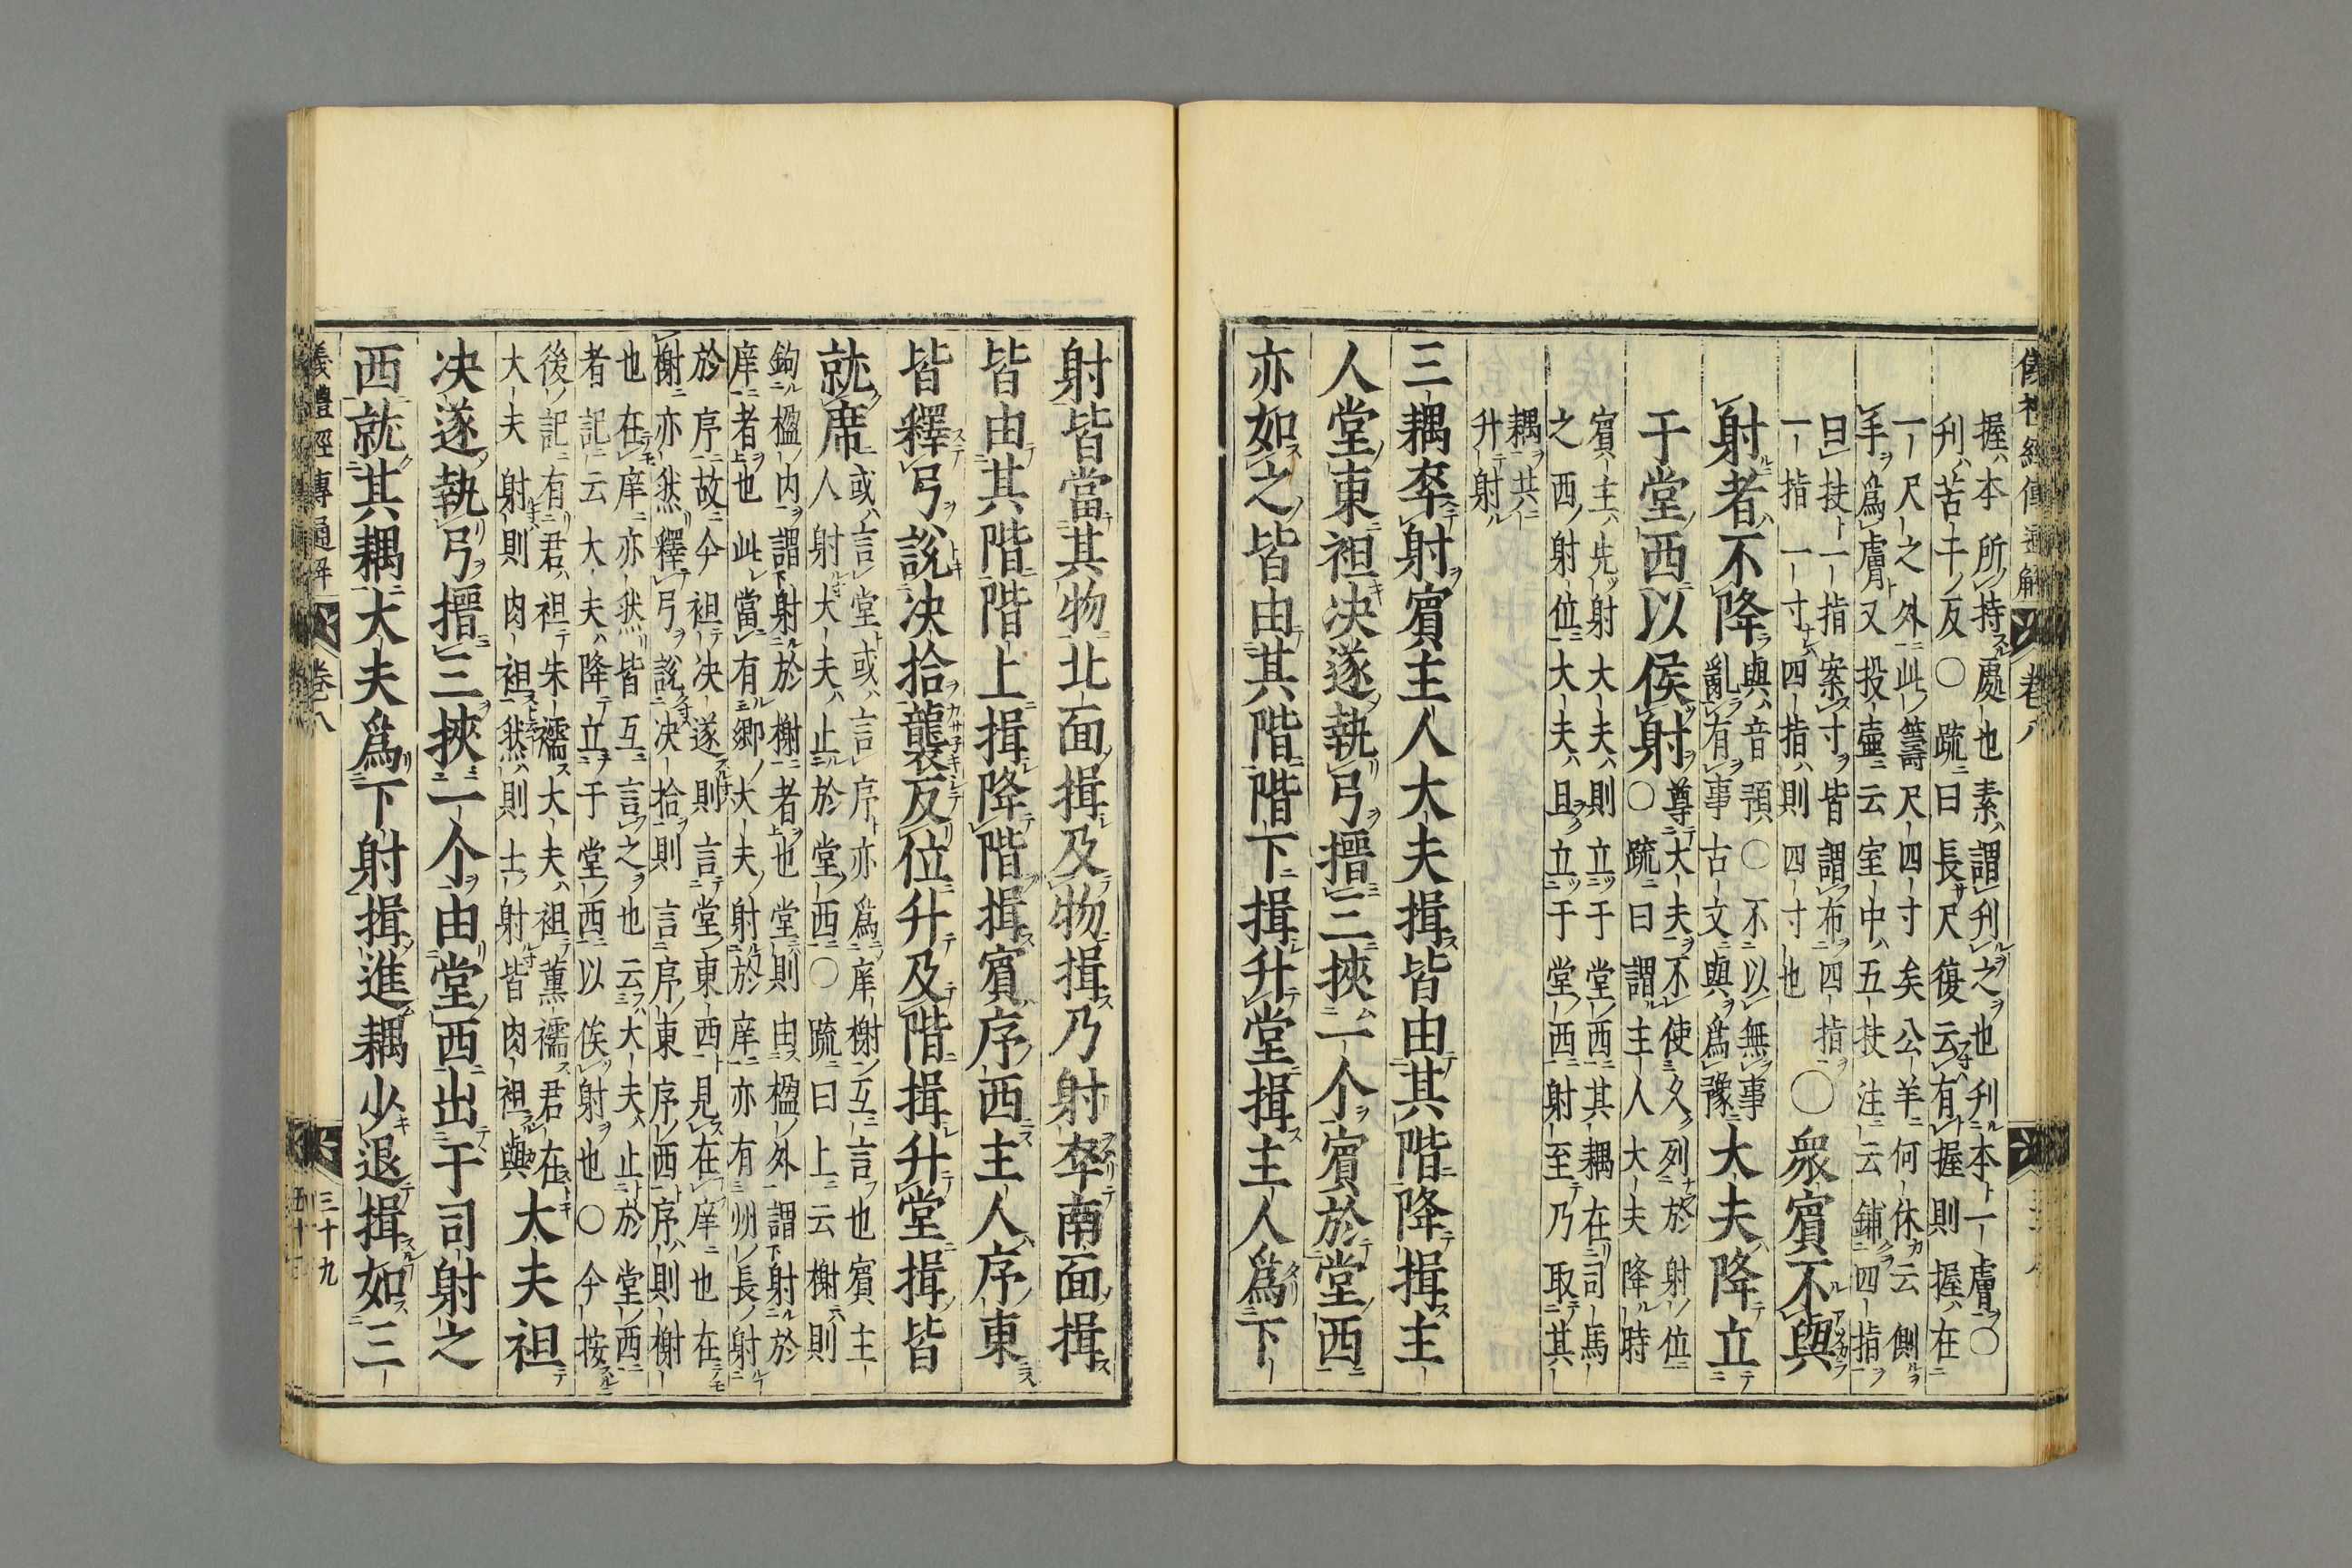 握本所持處也素謂刋之也刋本一膚〇
刋苦干反〇疏曰長尺復云有握則握在
一尺之外此籌尺四寸矣公羊何休云側
手爲膚又投壷云室中五扶注云鋪四指
曰扶一指案寸皆謂布四指
一指一寸四指則四寸也
〇衆賓不與
射者不降
與音預〇不以無事
亂有事古文與爲豫
大夫降立
于堂西以俟射
尊大夫不使久列於射位
〇疏曰謂主人大夫降時
賓主先射大夫則立于堂西其耦在司馬
之西射位大夫且立于堂西射至乃取其
耦共
升射
三耦卒射賓主人大夫揖皆由其階降揖主
人堂東袒决遂執弓搢三挾一个賓於堂西
亦如之皆由其階階下揖升堂揖主人爲下
儀禮經傳通解 卷八
射皆當其物北面揖及物揖乃射卒南面揖
皆由其階階上揖降階揖賓序西主人序東
皆釋弓說决拾襲反位升及階揖升堂揖皆
就席
或言堂或言序亦爲庠榭互言也賓主
人射大夫止於堂西〇疏曰上云榭則
鉤楹内謂射於榭者也堂則由楹外謂射於
庠者也此當有鄉大夫射於庠亦有州長射
於序故今袒决遂則言堂東西見在庠也在
榭亦然釋弓說决拾則言序東序西序則榭
也在庠亦然皆互言之也云大夫止於堂西
者記云大夫降立于堂西以俟射也〇今按
後記有君袒朱襦大夫袒薰襦君在
大夫射則肉袒然則士射皆肉袒與
大夫袒
决遂執弓搢三挾一个由堂西出于司射之
西就其耦大夫爲下射揖進耦少退揖如三
儀禮經傳通解 卷八 三十九